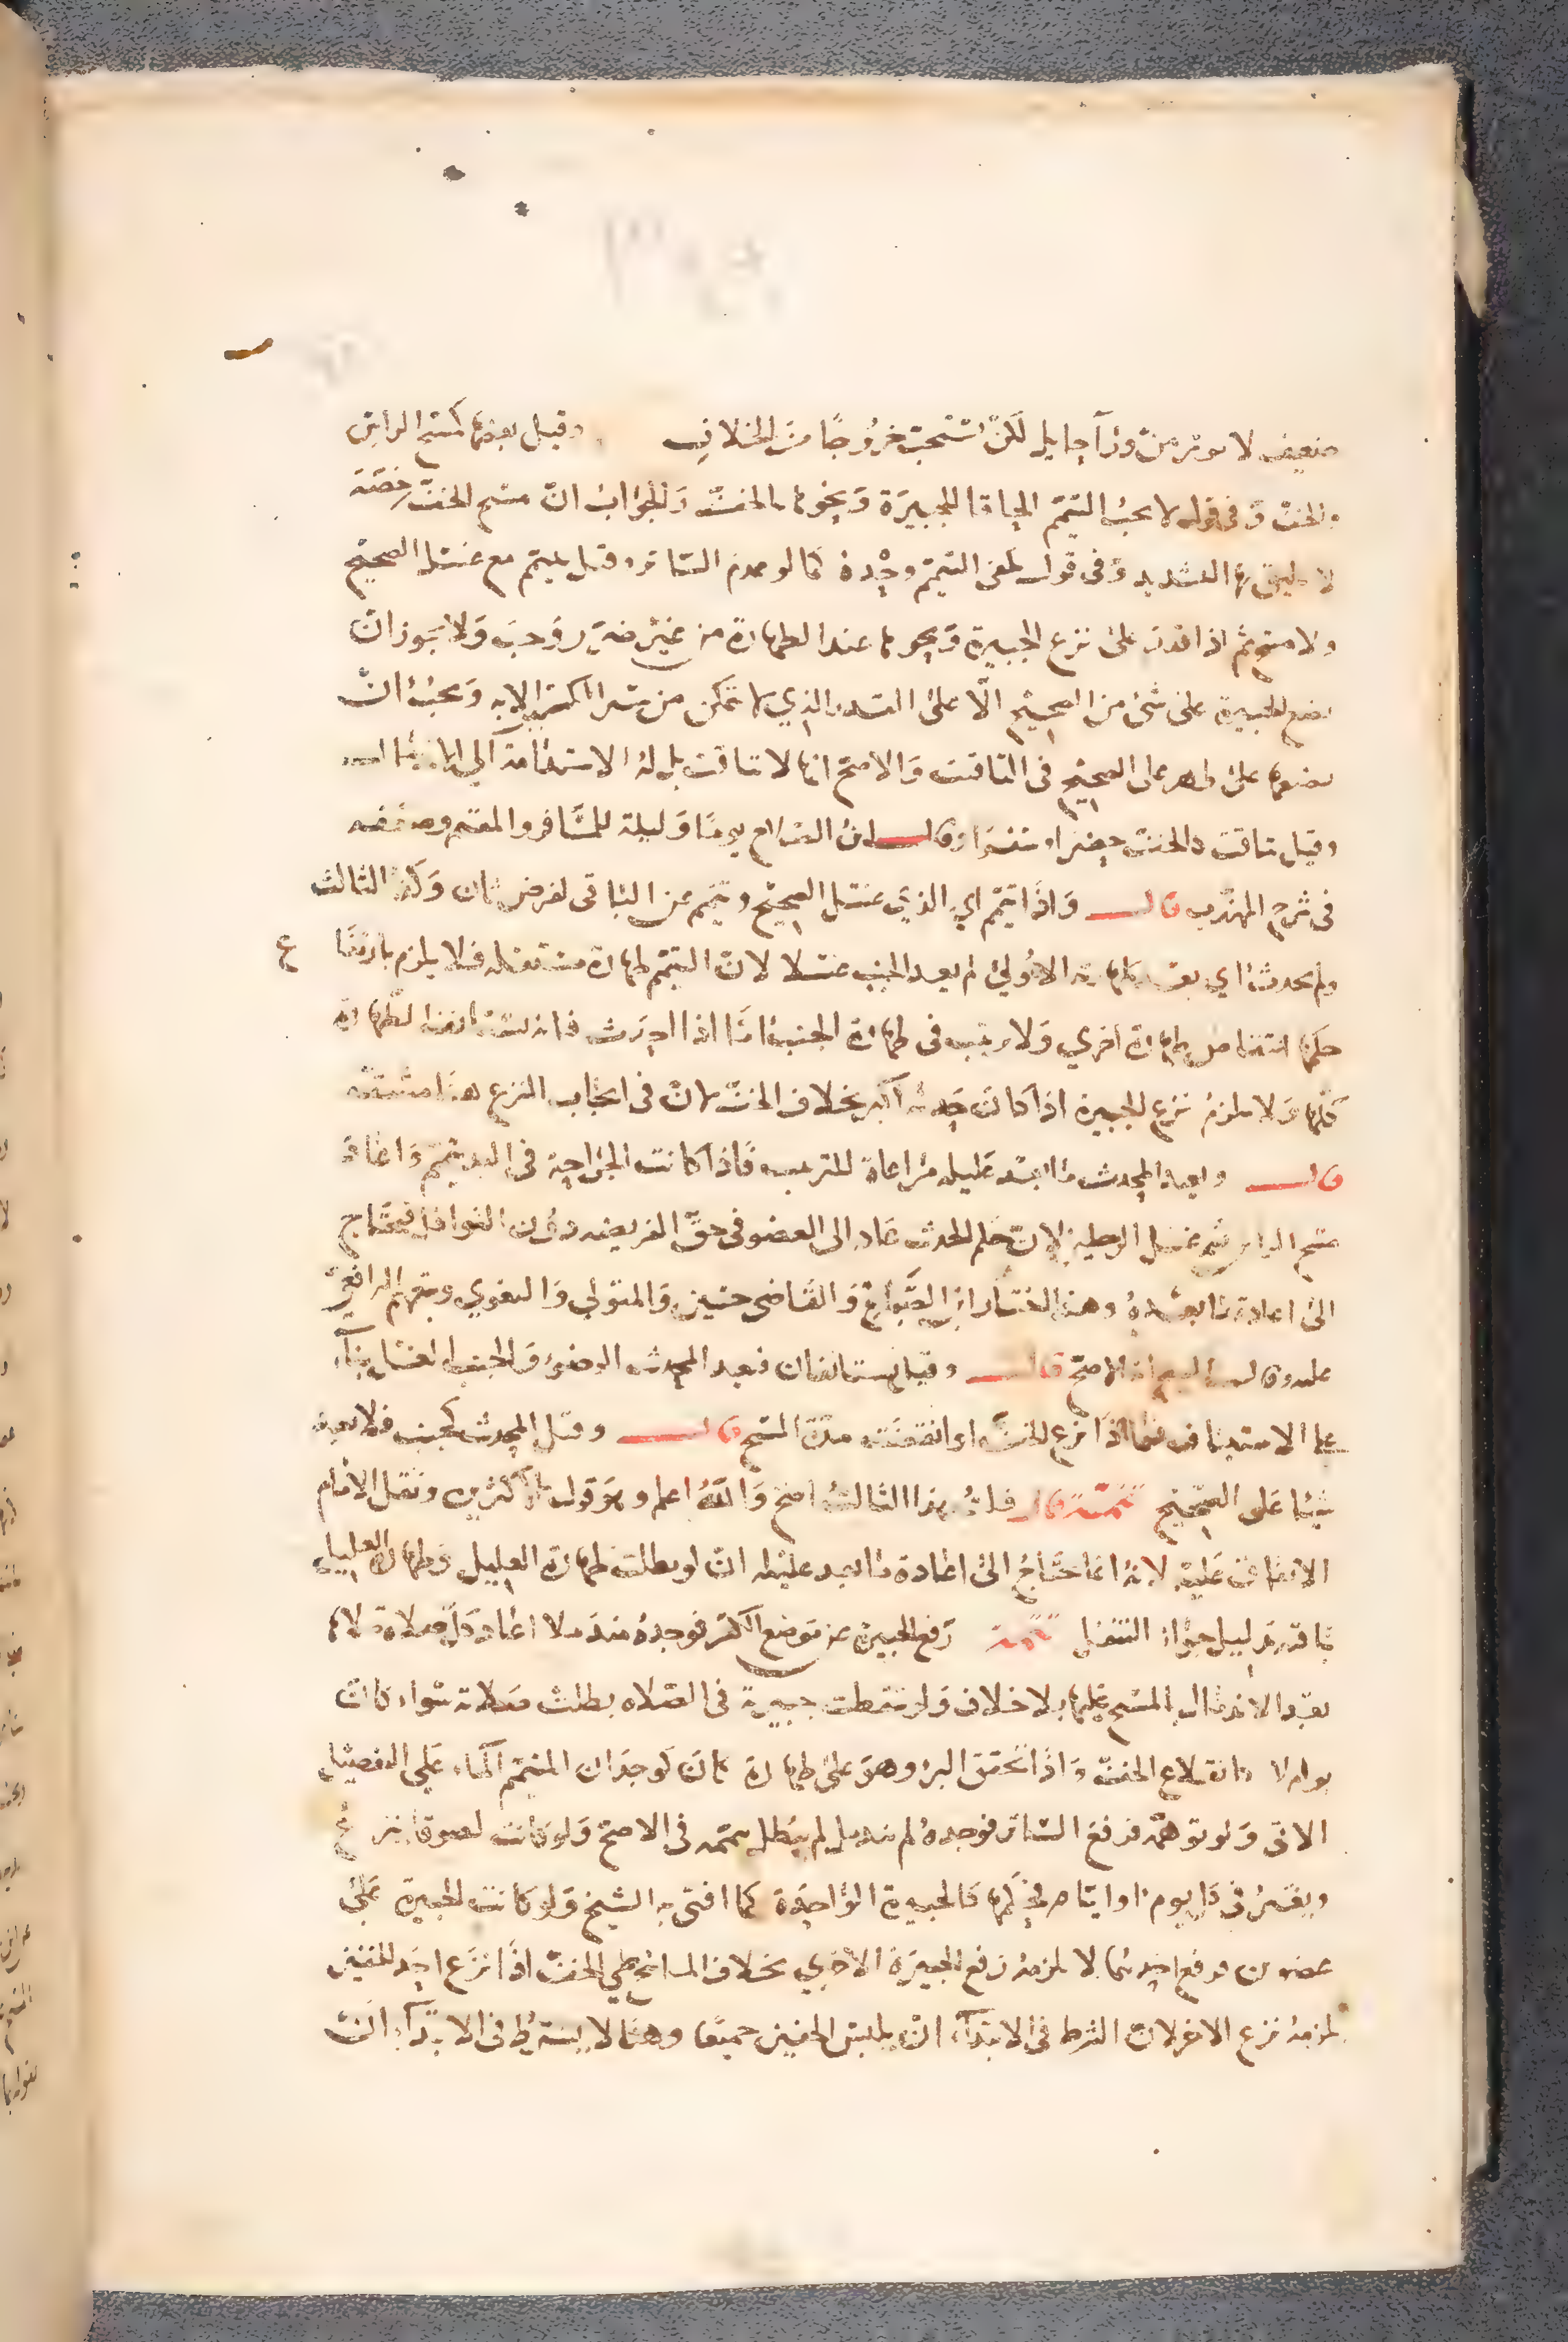 ضعيف لا يوثر من ورآ حايل لكن يستحب خروجًا من الخلاف وقيل بعضها كمسح الراس
والخف وفي قول لا يجب التيمم الحاقا للجبيرة ونحوها بالخف والجواب ان مسح الخف رخصة
لا يليق بها التشديد وفي قول يكفي التيمم وحده كما لو عدم الساتر وقيل يتيمم مع غسل الصحيح
ولا اذا قدر على نزع الجبيرة ونحوها عند الطهارة من غير ضرر وجب ولا يجوز ان
يضع الجبيرة على شي من الصحيح الا على القدر الذي لا يتمكن من ستر الكسر الا به ويجب ان
يضعها على طهر على الصحيح في التاقيت والاصح انها لا تتاقت بل له الاستدامة الي الاندمال
وقيل تتاقت كالخف حضرا وسفرا وقال ابن الفركاح يوما وليلة للمسافر والمقيم وضعفه
في شرح المهذب قال واذا تيمم اي الذي غسل الصحيح وتيمم عن الباقي لفرض ثان وكذا الثالث
ولم يحدث اي بعد طهارته الاولي لم يعد الجنب غسلا لان التيمم طهارة مستقله فلا يلزم بارتفاع
حكمها انتقاض طهارة اخري ولا ترتيب في طهارة الجنب اما اذا احدث فانه يستانف الطهارة
كلها ولا يلزم نزع الجبيرة اذا كان حدثه اكبر بخلاف الخف لان في ايجاب النزع هنا مشقة
قال ويعيد المحدث ما بعد عليله مراعاة للترتيب فاذا كانت الجراحة في اليد تيمم واعاد
مسح الراس ثم غسل الرجلين لان حكم الحدث عاد الى العضو في حق الفريضه دون النوافل فيحتاج
الى اعادة ما بعده وهذا اختيار ابن الصباغ والقاضي حسين والمتولي والبغوي وتبعهم الرافعي
عليه وقال انه الاصح قال وقيل يستانفان فيعيد المحدث الوضوء والجنب الغسل بنآء
علي الاستيناف فيما اذا نزع الخف او انقضت مدة المسح قال وقيل المحدث كجنب فلا يعيد
شيئا على الصحيح تتمة قال قلت هذا الثالث اصح والله اعلم وهو قول الاكثرين ونقل الامام
الاتفاق عليه لانه انما يحتاج الى اعادة ما بعد عليله ان لو بطلت طهارة العليل وطهارة العليل
باقيه بدليل جواز التنفل تتمة رفع الجبيرة عن موضع الكسر فوجده مندملا اعاد كل صلاة صلاها
بعد الاندمال بالمسح عليها بلا خلاف ولو سقطت جبيرة في الصلاه بطلت صلاته سواء كان
برا ام لا كانقلاع الخف واذا تحقق البرء وهو على طهارة كان كوجدان المتيمم الماء علي التفصيل
الاتي ولو توهمه فرفع الساتر فوجده لم يندمل لم يبطل تيممه في الاصح ولو كانت لصوقا ينزع
ويغير في كل يوم او ايام فحكمها كالجبيرة الواحدة كما افتى به الشيخ ولو كانت الجبيرة على
عضوين فرفع احديهما لا يلزمه رفع الجبيرة الاخري بخلاف الماسح علي الخف اذا نزع احد الخفين
يلزمه نزع الاخر لان الشرط في الابتدآء ان يلبس الخفين جميعا وهنا لا يشترط في الابتدآء ان